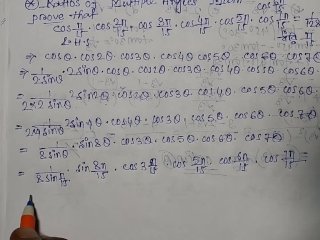 Ratios of Multiple Angles
prove that
cos π/15 · cos 2π/15 · cos 3π/15 · cos 4π/15 · cos 5π/15 · cos
L.H.S
⇒ cosθ · cos2θ · cos3θ · cos4θ cos5θ cos6θ cos7θ
= 1/2sinθ · 2sinθ · cosθ · cos2θ · cos3θ · cos4θ cos5θ cos6θ
= 1/2×2sinθ 2sin2θ cos2θ · cos3θ cos4θ cos5θ cos6θ
= 1/2×4sinθ 2sin4θ · cos4θ · cos3θ cos5θ · cos6θ · cos7θ
= 1/8sinθ · sin8θ · cos3θ · cos5θ · cos6θ · cos7θ
= 1/8sin π/15 · sin 8π/15 · cos 3π/15 · cos 5π/15 · cos 6π/15 · cos 7π/15 =